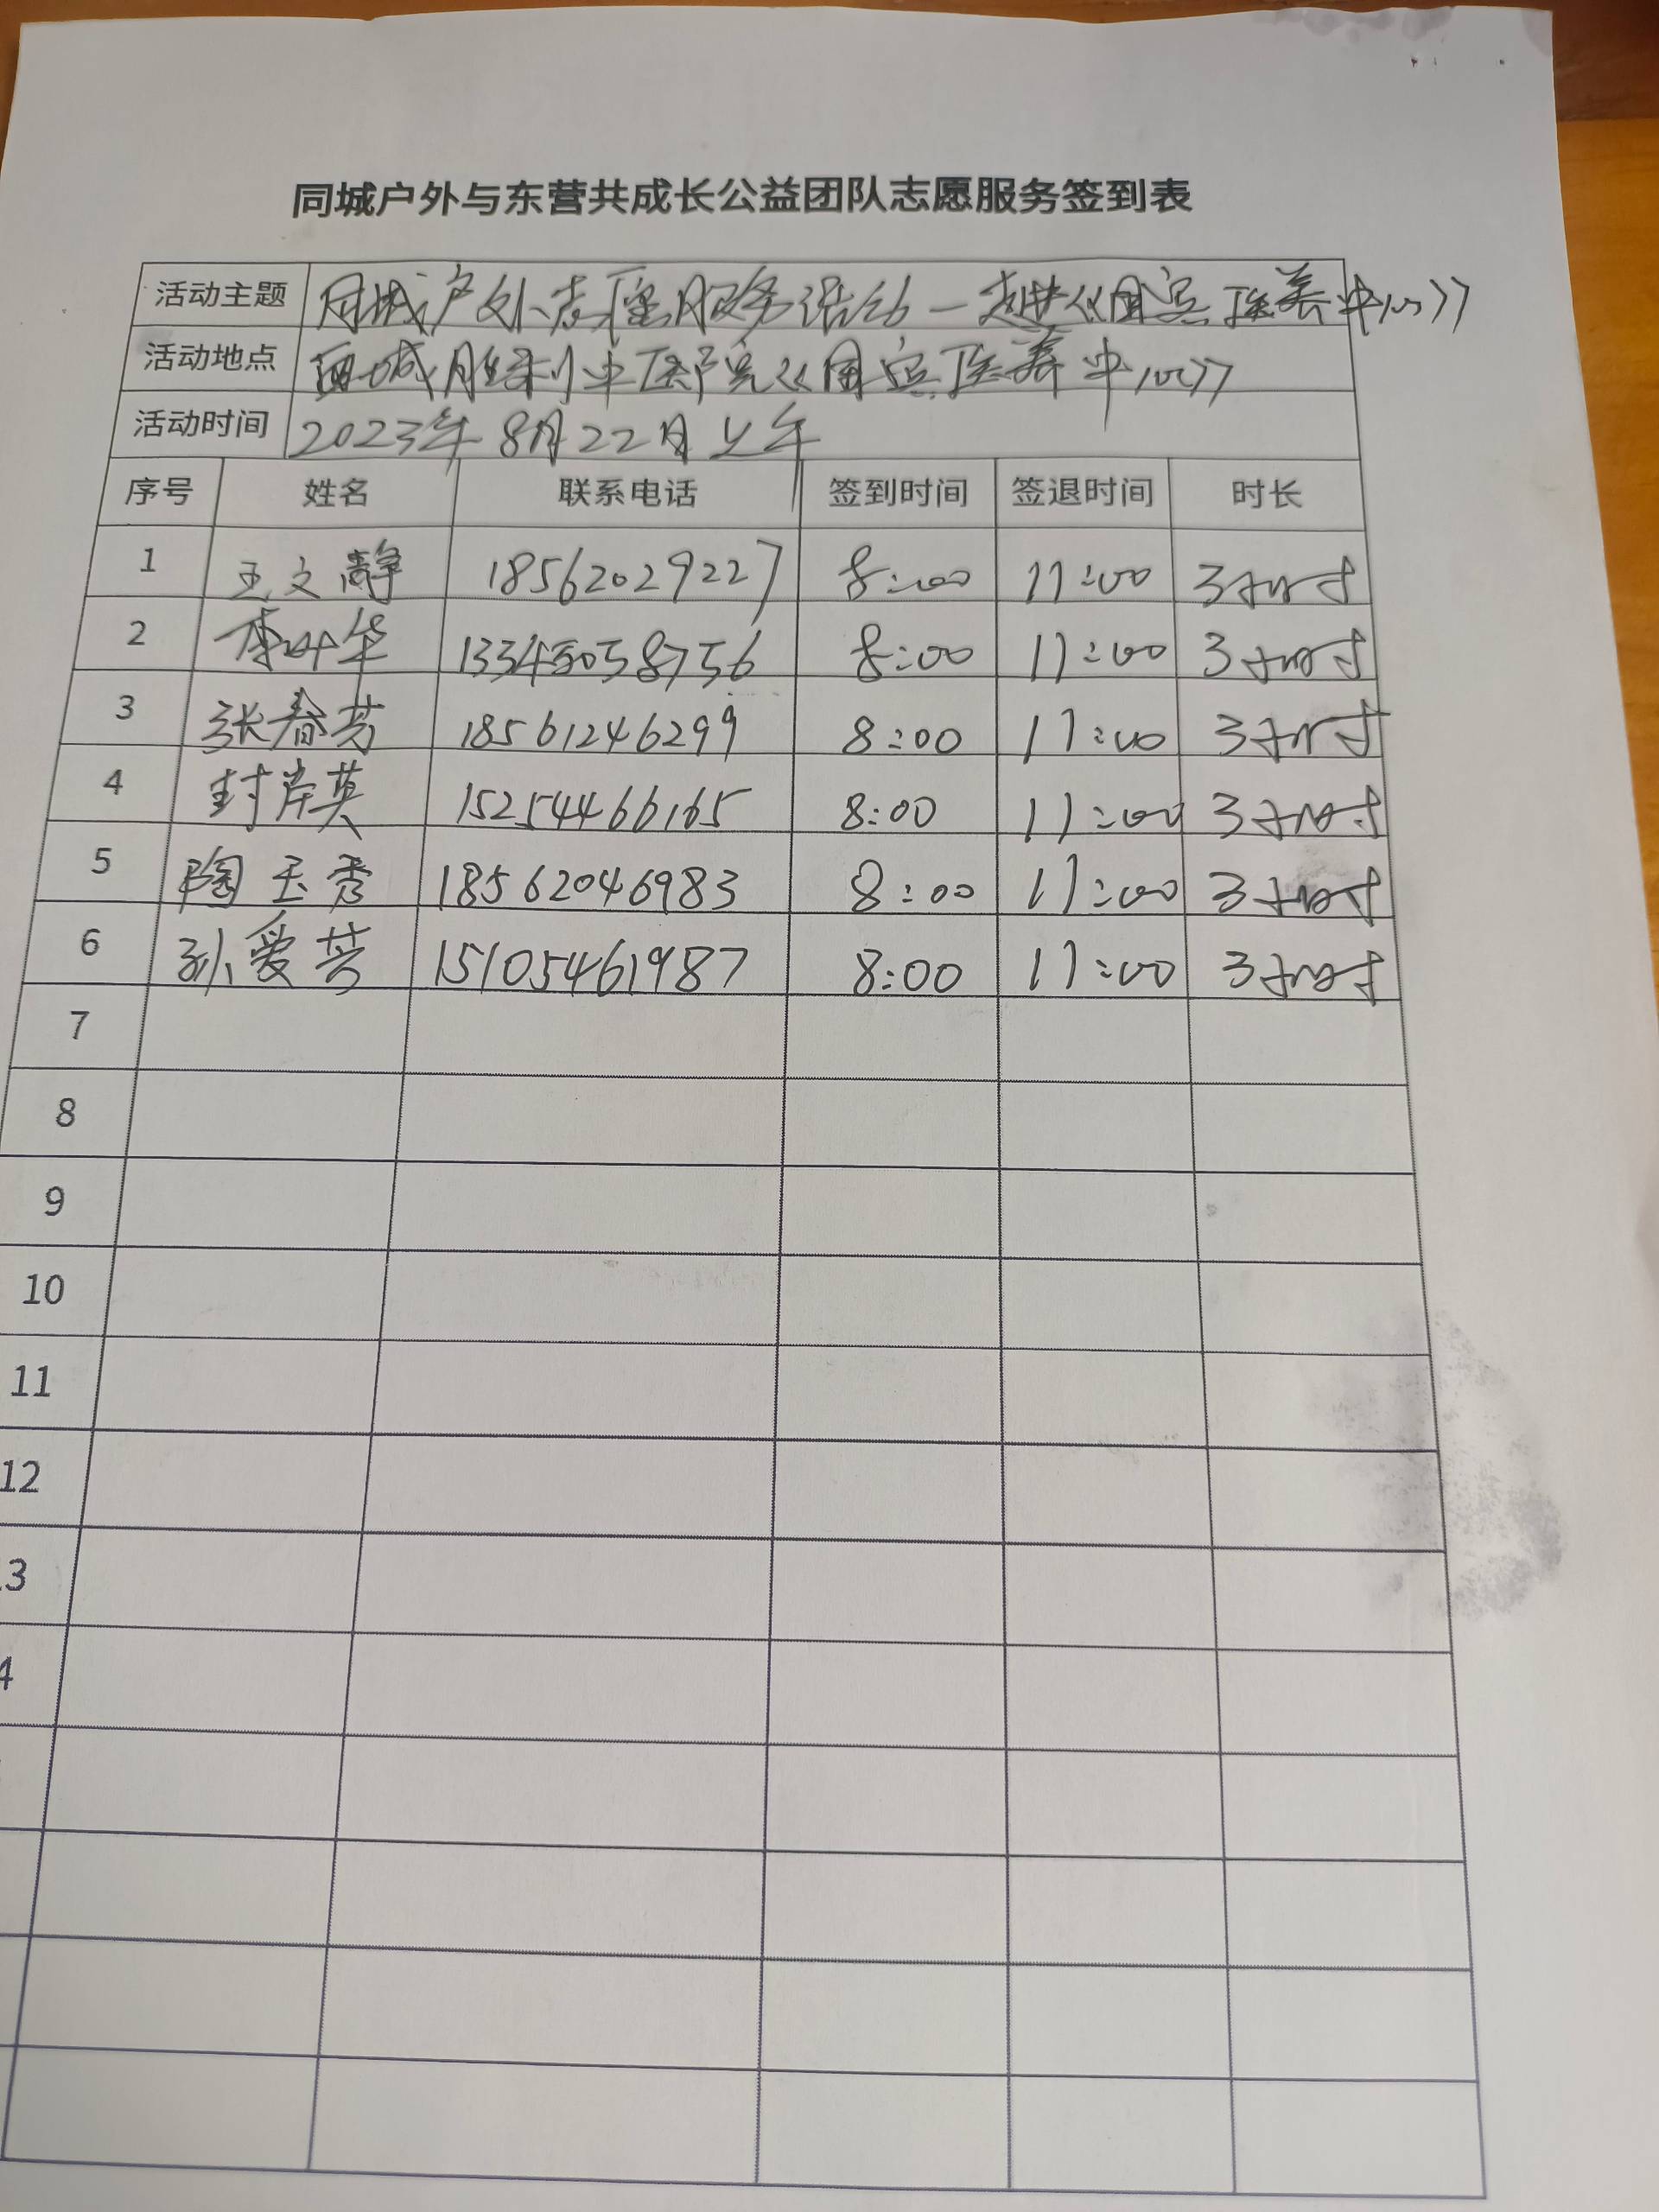 同城户外与东营共成长公益团队志愿服务签到表
活动主题 同城户外志愿服务活动一走进《国宾医养中心》
活动地点 西城胜利中医院《国宾医养中心》
活动时间 2023年8月22日上午
序号 姓名 联系电话 签到时间 签退时间 时长
1 王文静 18562029227 8:00 11:00 3小时
2 李叶华 8:00 11:00 3小时
3 张春芳 18561246299 8:00 11:00 3小时
4 封岸英 15254466165 8:00 11:00 3小时
5 陶玉秀 18562046983 8:00 11:00 3小时
6 孙爱芳 15105461987 8:00 11:00 3小时
7
8
9
10
11
12
3
4